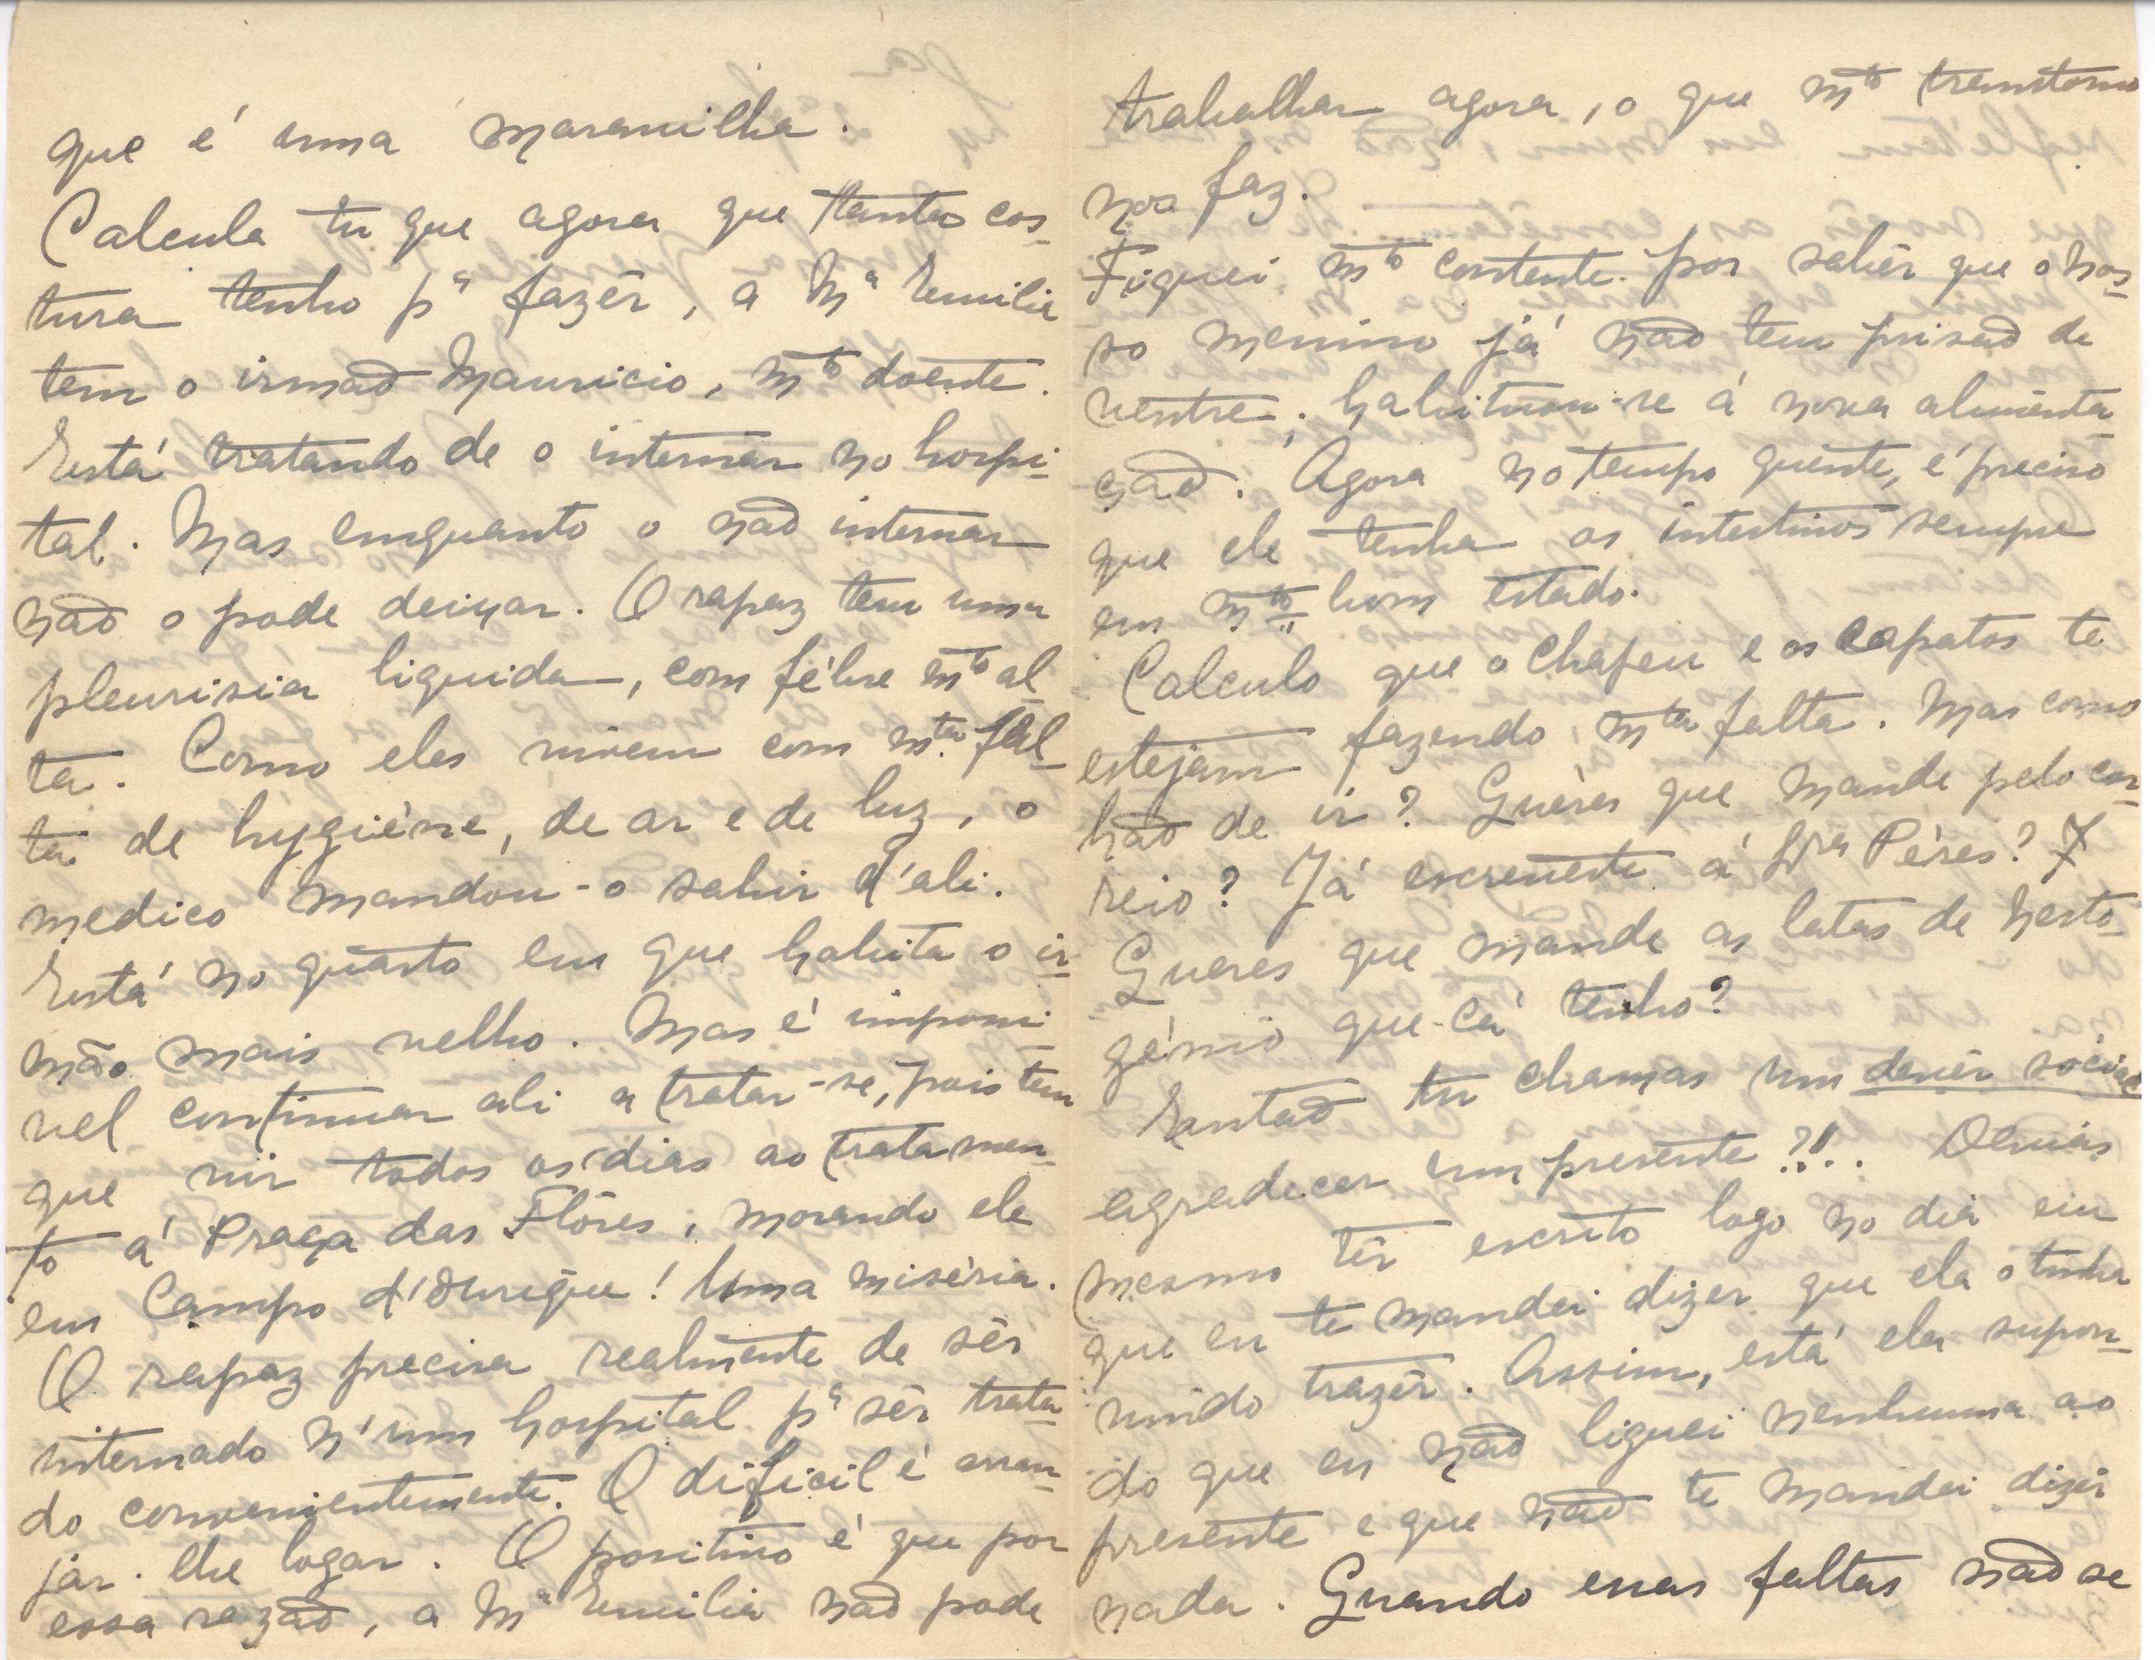 que é uma maravilha.
Calcula tu que agora que tanta cos-
tura tenho pª fazêr, a Mª Emilia
tem o irmaõ Mauricio, mto doente.
Está tratando de o internar no hospi-
tal. Mas emquanto o naõ internar
naõ o pode deixar. O rapaz tem uma
pleurisia liquida, com fébre mto al-
ta. Como eles vivem com mta fal-
ta de hygiéne, de ar e de luz, o
medico mandou-o sahir d'ali.
Está no quarto em que habita o ir-
mão mais velho. Mas é impossi-
vel continuar ali a tratar-se, pois tem
que vir todos os dias ao tratamen-
to á Praça das Flôres, morando ele
em Campo d'Ourique! Uma miséria.
O rapaz precisa realmente de sêr
internado n'um hospital pª sêr trata-
do convenientemente. O dificil é arran-
jar-lhe logar. O positivo é que por
essa razaõ, a Mª Emilia naõ pode
trabalhar agora, o que mto transtorno
nos faz.
Fiquei mto contente por sabêr que o nos-
so menino já naõ tem prisaõ de
ventre; habituou-se á nova alimenta-
çaõ. Agora no tempo quente, é preciso
que ele tenha os intestinos sempre
em mto bom estado.
Calculo que o chapeu e os sapatos te
estejam fazendo mta falta. Mas como
haõ de ir? Quéres que mande pelo cor-
reio? Já escreveste á Srª Péres?
Queres que mande as latas de Nesto-
génio que cá tenho?
Entaõ tu chamas um devêr sócial
agradecer um presente?!!.. Devias
mesmo têr escrito logo no dia em
que eu te mandei dizer que ela o tinha
vindo trazêr. Assim, está ela supon-
do que eu naõ liguei nenhuma ao
presente e que naõ te mandei dizêr
nada. Quando essas faltas naõ se